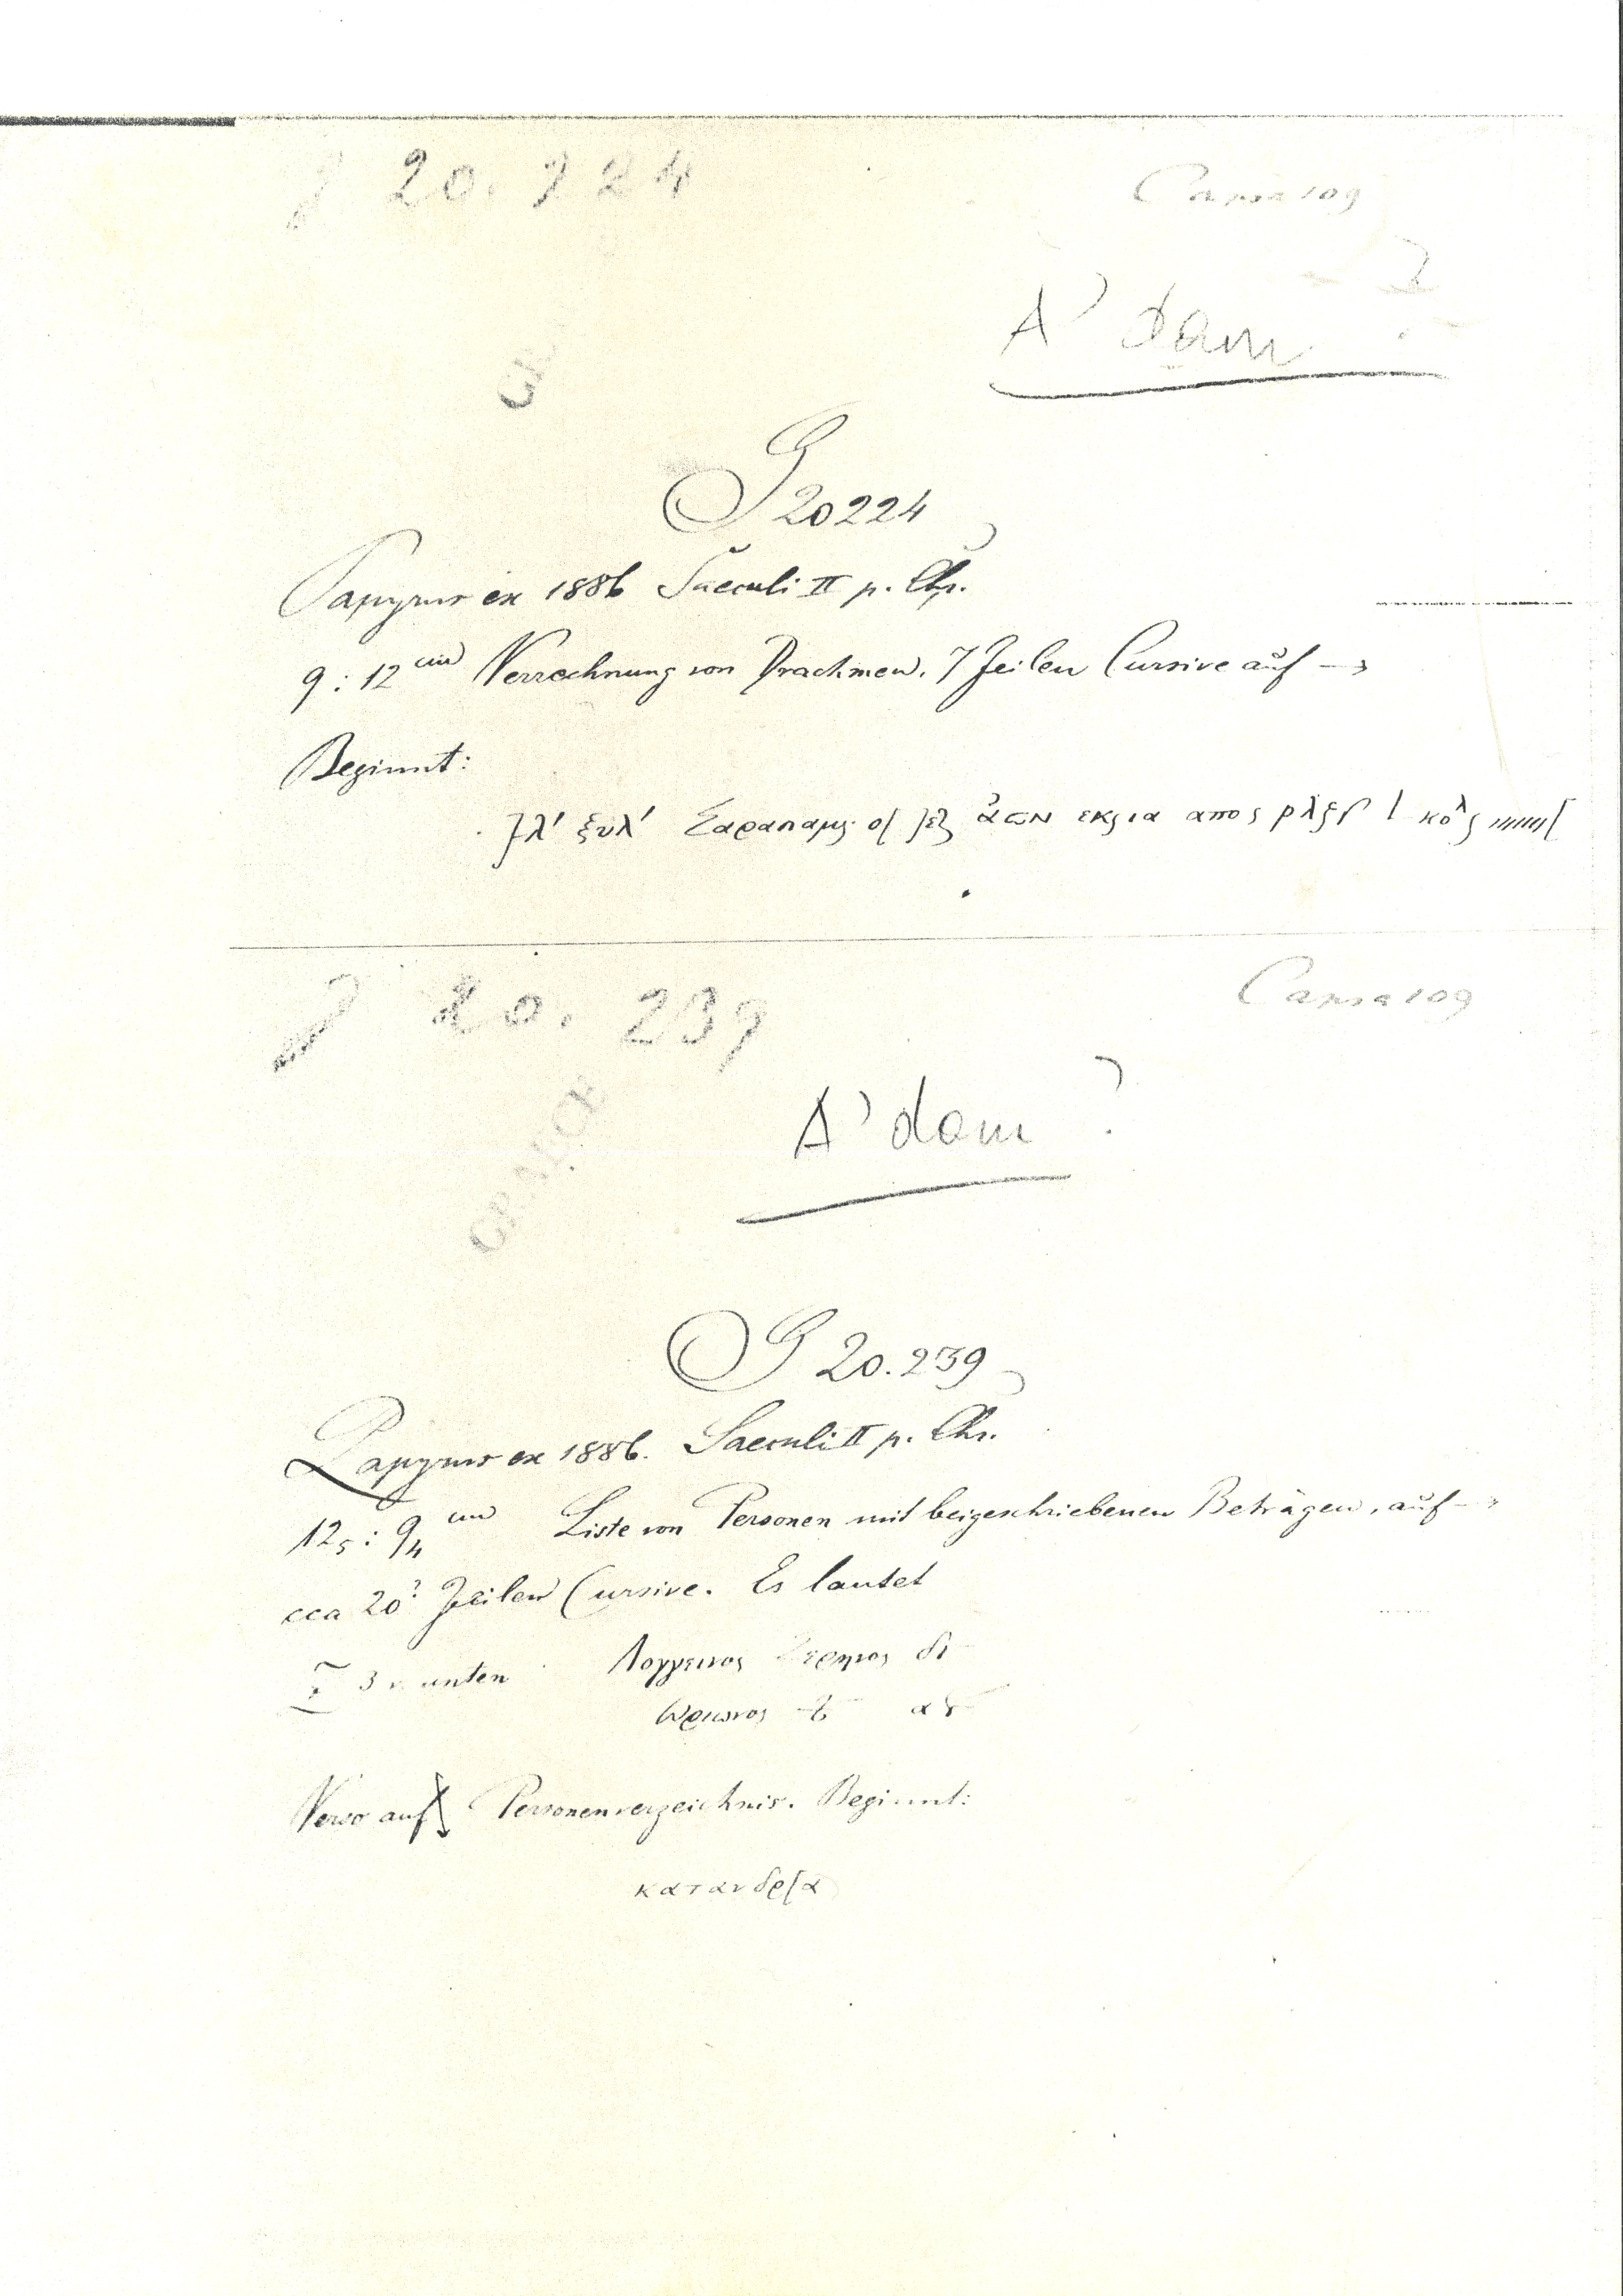 J 20.224
Capsa 109
A'dam ?
G 20224
Papyrus ex 1886 Saeculi II p. Chr.
9 : 12 cm Verrechnung von Drachmen. 7 Zeilen Cursive auf →
Beginnt:
ξυλ' απο
J 20.239
Capsa 109
A'dam ?
G 20.239
Papyrus ex 1886. Saeculi II p. Chr.
12₅ : 9₄ cm Liste von Personen mit beigeschriebenen Beträgen, auf →
cca 20? Zeilen Cursive. Es lautet
3 v. unten Λογγεινος
Verso auf Personenverzeichnis. Beginnt:
κατανδρ[α